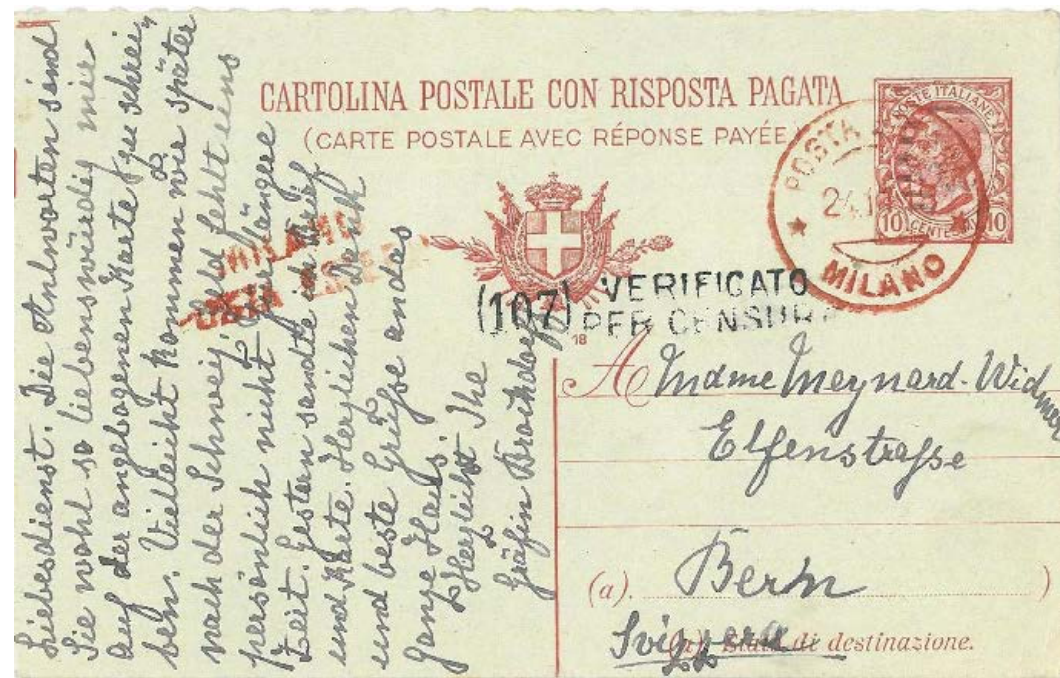 CARTOLINA POSTALE CON RISPOSTA PAGATA
(CARTE POSTALE AVEC RÉPONSE PAYÉE)
POSTE ITALIANE
10 CENTESIMI 10
POSTA
24.1
MILANO
MILANO
ESTERA
(107) VERIFICATO
PER CENSURA
18
A Mdme Meynard-Widmer
Elfenstraße
(a). Bern )
Svizzera
(a) Stato di destinazione.
Liebesdienst. Die Antworten sind
Sie wohl so liebenswürdig mir
auf der angebogenen Karte zu schrei-
ben. Vielleicht kommen wir später
nach der Schweiz, Geld fehlt uns
persönlich nicht für längere
Zeit. Gestern sandte ich Brief
und Karte. Herzlichen Dank
und beste Grüße an das
ganze Haus.
Herzlichst Ihre
Gräfin Brockdorff